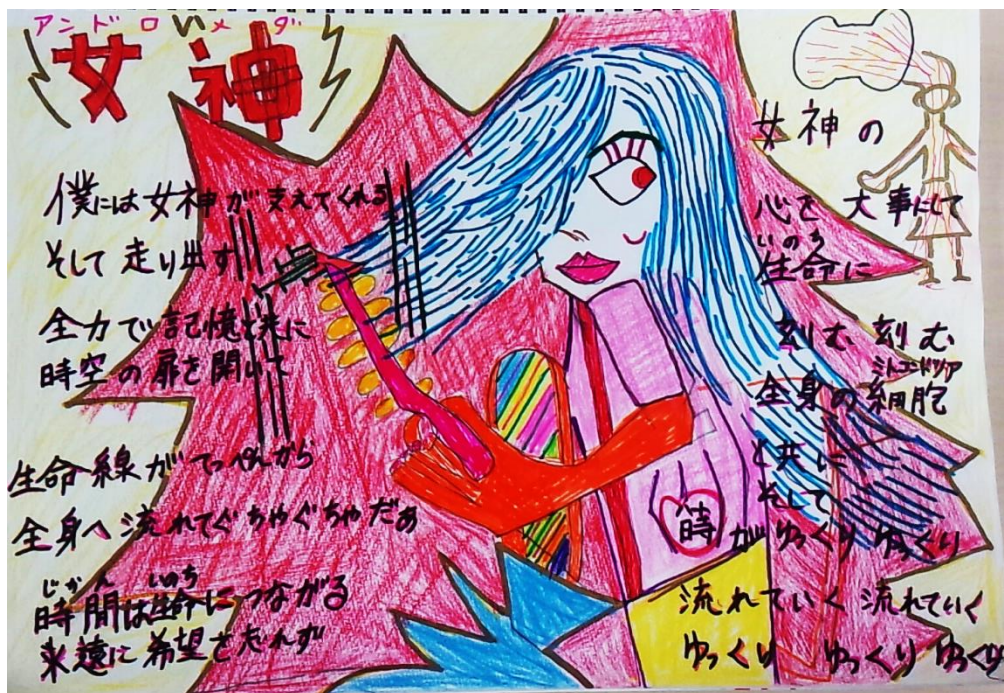 アンドロメダ
女神
僕には女神が支えてくれる
そして走り出す
全力で記憶と共に
時空の扉を開いて
生命線がてっぺんから
全身へ流れてぐちゃぐちゃだぁ
じかん いのち
時間は生命につながる
永遠に希望を忘れず
女神の
心を大事にして
いのち
生命に
刻む 刻む
ミトコンドリア
全身の細胞
と共に
そして
時がゆっくり ゆっくり
流れていく 流れていく
ゆっくり ゆっくり ゆっくり